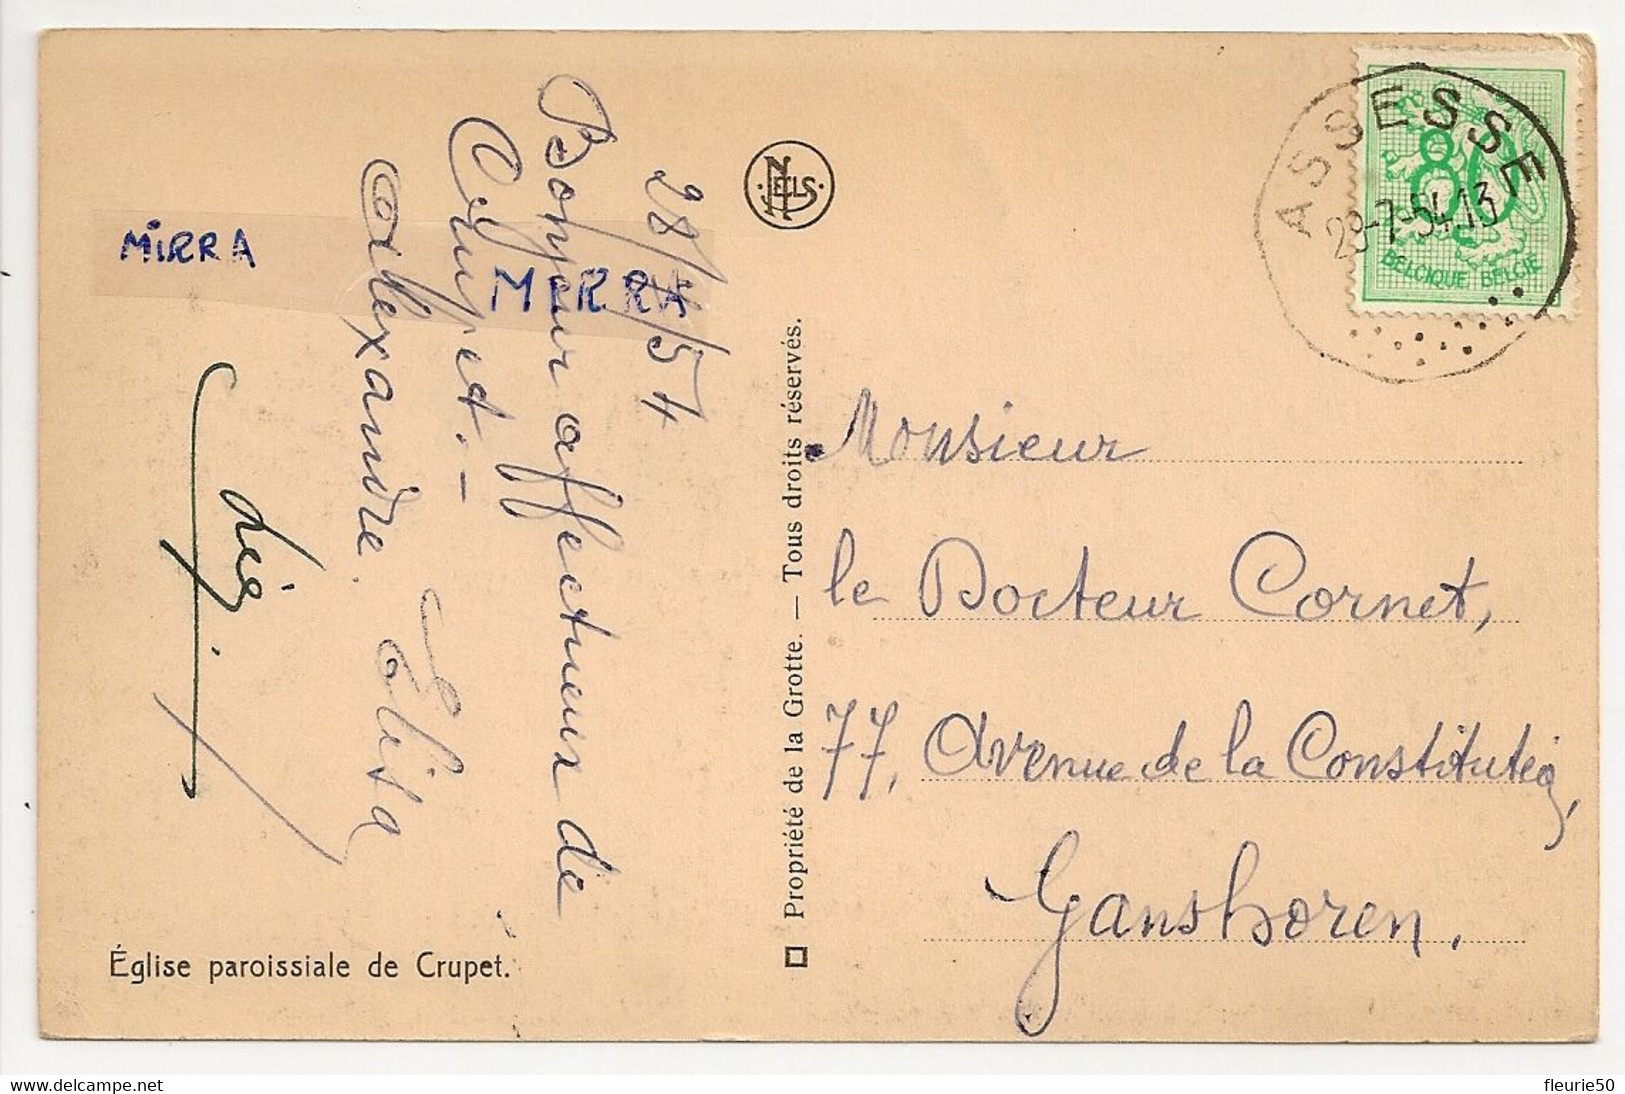 28/7/54
Bonjour affectueux de
Crupet. –
Alexandre. Elisa
MIRRA
MIRRA
Église paroissiale de Crupet.
NELS
Propriété de la Grotte. — Tous droits réservés.
ASSESSE
28-7-54.13
80
BELGIQUE BELGIË
Monsieur
le Docteur Cornet,
77, Avenue de la Constitution,
Ganshoren.
fleurie50